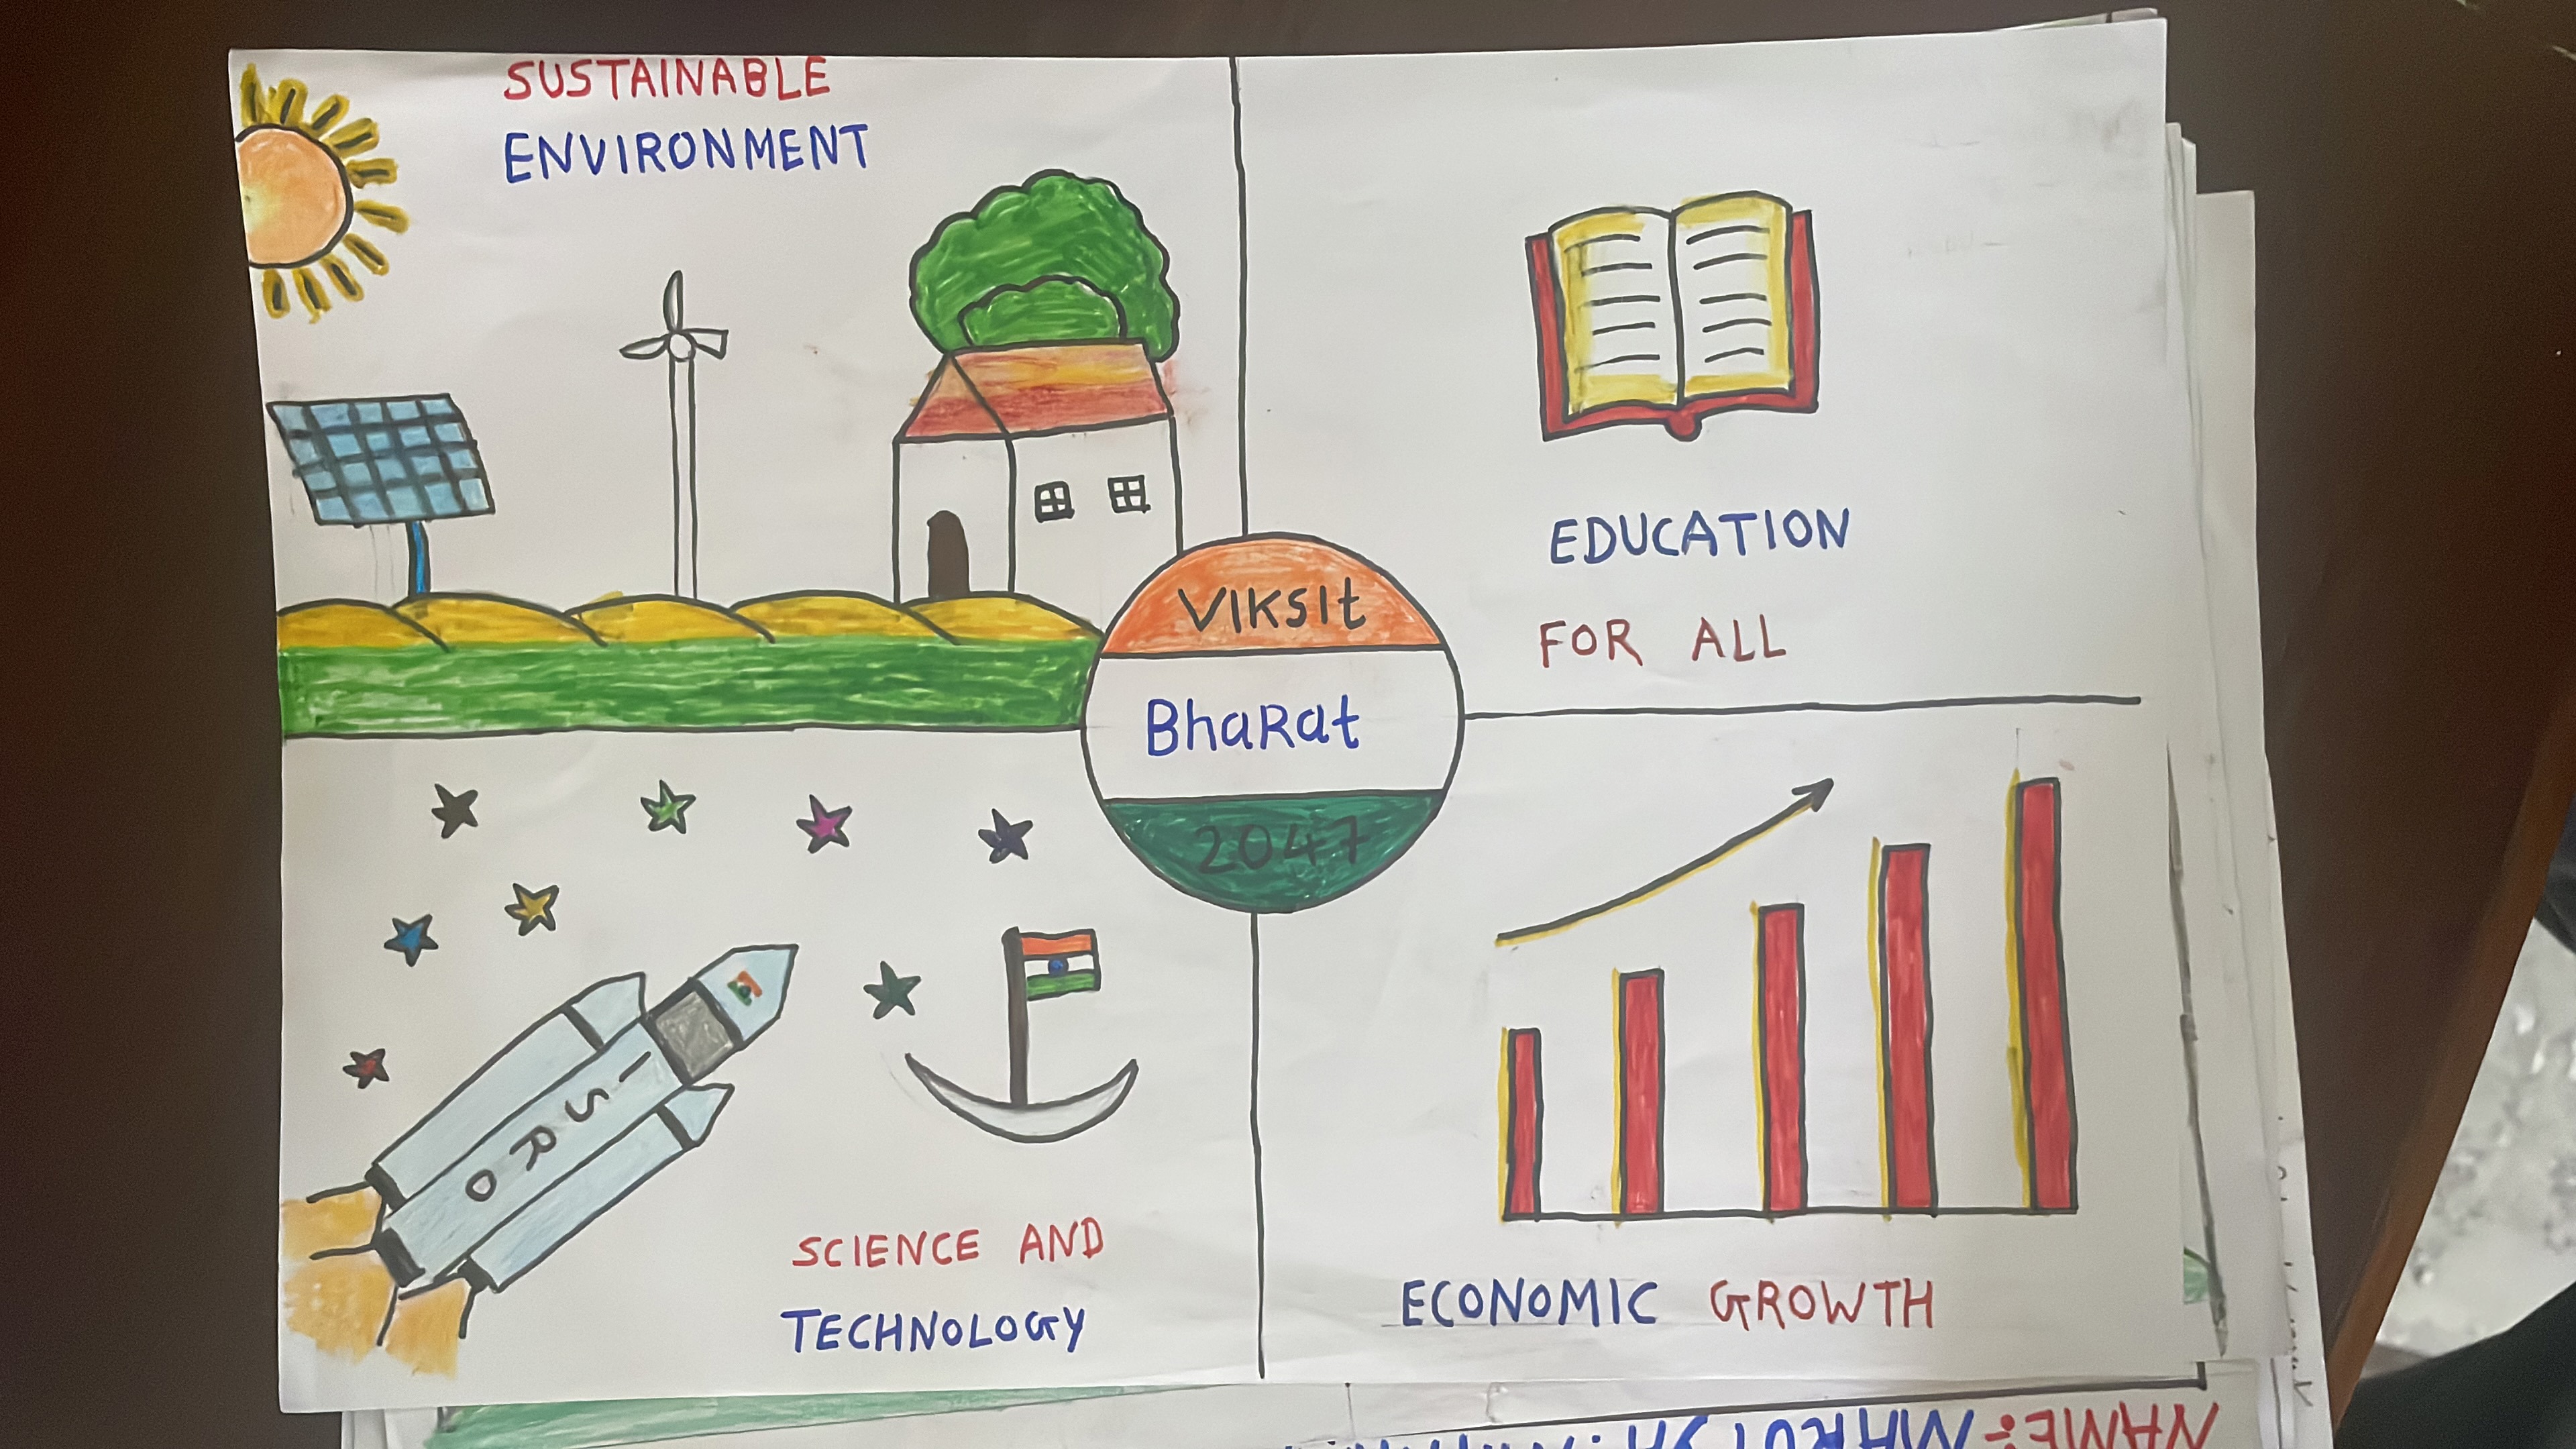 SUSTAINABLE
ENVIRONMENT
EDUCATION
FOR ALL
VIKSIt
BhaRat
2047
ISRO
SCIENCE AND
TECHNOLOGY
ECONOMIC GROWTH
NAME: